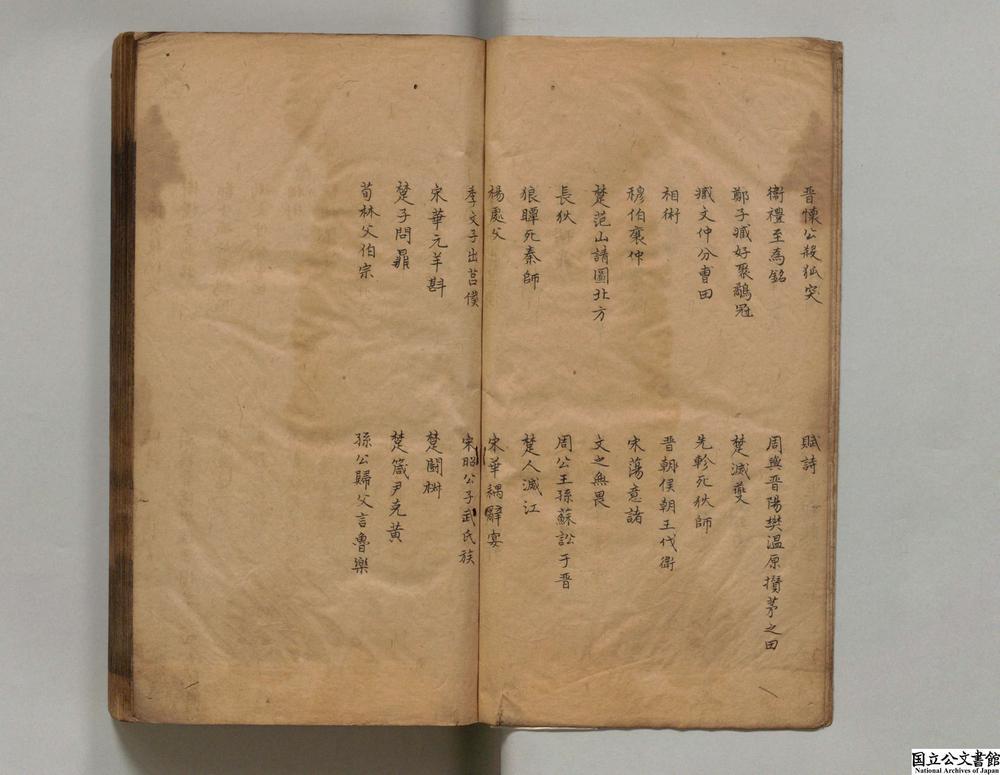 晋懷公殺狐突
賦詩
衞禮至為銘
周與晋陽樊溫原攅茅之田
鄭子臧好聚鷸冠
楚滅夔
臧文仲分曹田
先軫死狄師
相衞
晋朝僕朝王伐衞
穆伯襄仲
宋蕩意諸
楚范山請圖北方
文之無畏
長狄
周公王孫蘇訟于晋
狼瞫死秦師
楚人滅江
楊處父
宋華耦辭宴
季文子出莒僕
宋昭公子武氏族
宋華元羊斟
楚鬭椒
楚子問鼎
楚箴尹克黄
荀林父伯宗
孫公歸父言魯樂
国立公文書館
National Archives of Japan